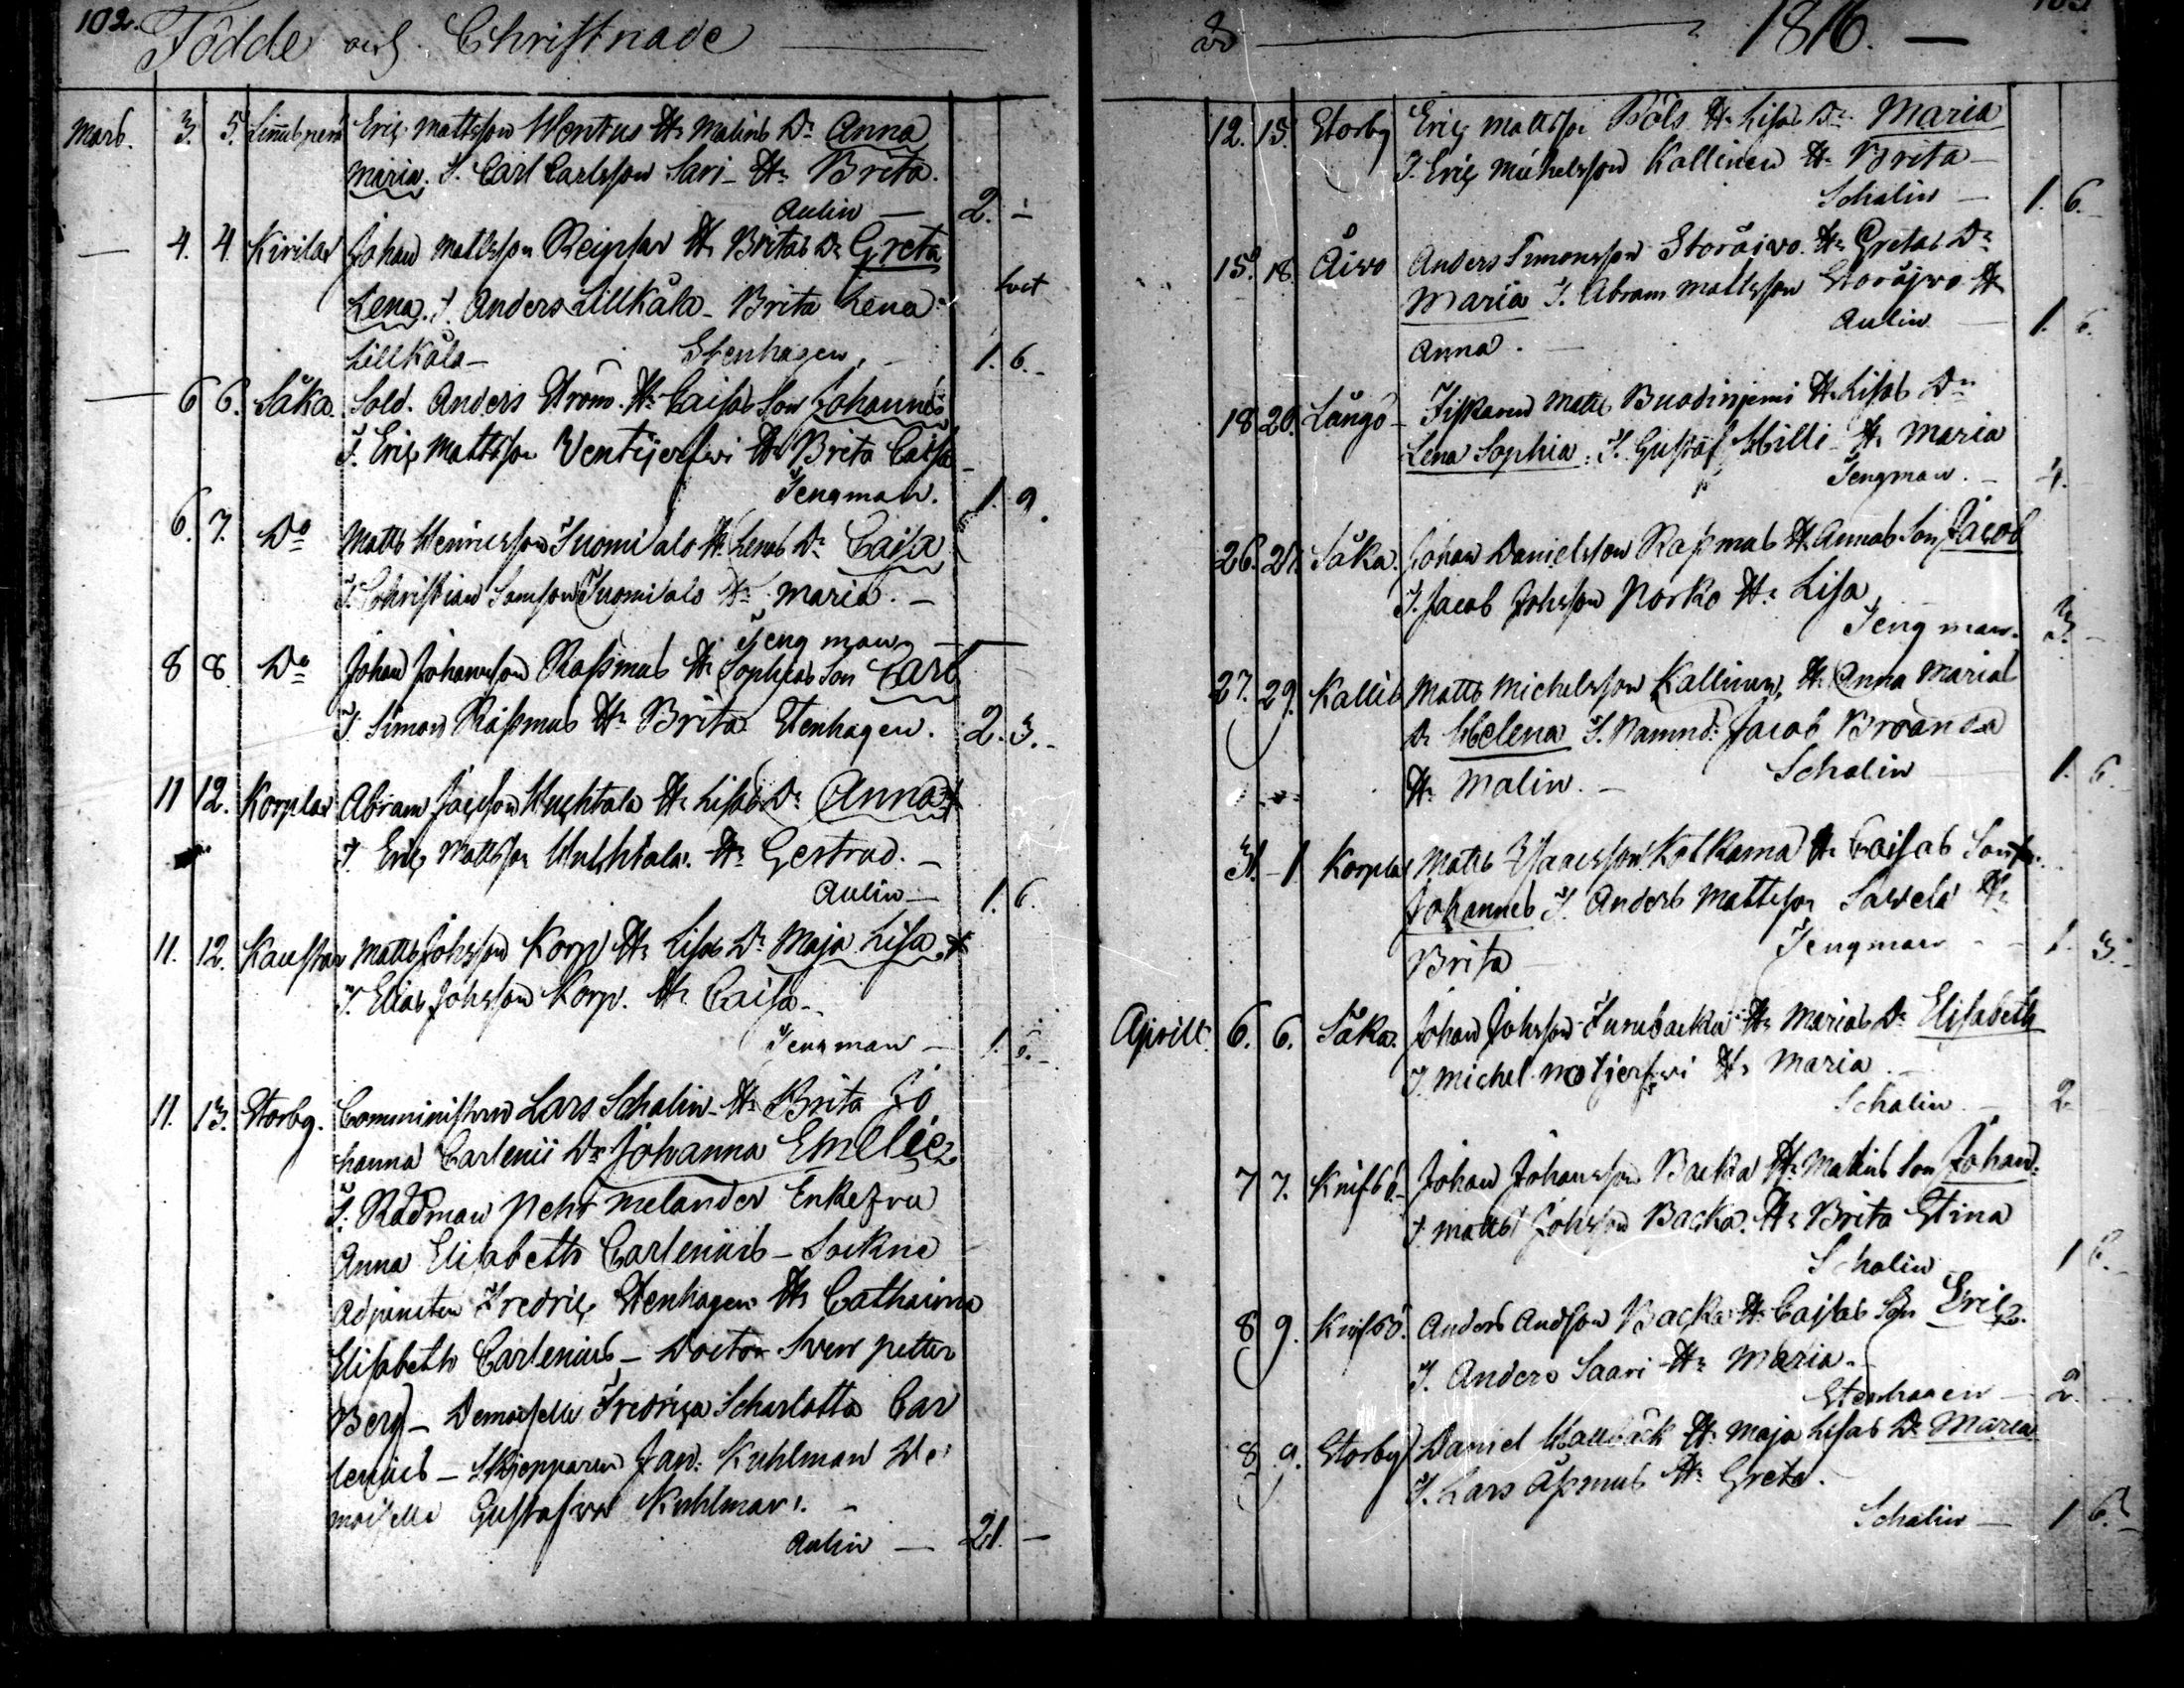 102. Födde och Christnade
Mars. 3. 5. Eric Mattsson Wentus H. Malins Dr Anna
Maria. T. Carl Carlsson Sari H. Brita.
Aulin — 2. -
— 4. 4. Kirilax Johan Mattsson Reipsar H. Britas Dr Greta
Lena. T. Anders Lillkåla - Brita Lena
Lillkåla - Stenhagen. 1. 6. -
— 6 6. Såka. Sold. Anders Ström. H. Caisas Son Johannes
T. Eric Mattsson Ventjerfwi H. Brita Caisa
Tengman. 1. 9.
6. 7. Do Matts Henricsson Tuomisalo H. Lenas Dr Caisa
T. Christian Samson Tuomisalo H. Maria. -
Tengman —
8 8 Do Johan Johansson Rasmus H. Sophias Son Carl
T. Simon Rasmus H. Brita Stenhagen. 2. 3. -
11 12. Korplax Abram Jacsson Huchtala H. Lisas Dr Anna
T Eric Mattsson Huchtala. H. Gertrud. -
Aulin — 1. 6.
11. 12. Kaustar Matts Johsson Korp H. Lisas Dr Maja Lisa
T Elias Johsson Korp. H. Caisa -
Tengman — 1. 6. -
11. 13. Storby. Comministern Lars Schalin - H. Brita Jo
hanna Carlenii Dr Johanna Emelie
T: Rådman Pehr Melander Enkefru
Anna Elisabeth Carlenius - Sockne
Adjuncten Fredric Stenhagen H. Catharina
Elisabeth Carlenius - Doctor Sven Petter
Berg - Demoiselle Fredrica Scharlotta Car
lenius - Skjepparen Jan: Kuhlman De
moiselle Gustafva Kuhlman. -
Aulin — 21. —
år — 1816. —
12. 15. Storby Eric Mattsson Pöls H. Lisas Dr Maria
T. Eric Michelsson Kallinen H. Brita -
Schalin — 1. 6. -
15. 18. Åiwo Anders Simonsson Storåiwo. H. Gretas Dr
Maria T. Abram Mattsson Storåjwo H
Anna. - Aulin — 1. 6.
18 20. Långö - Fiskaren Matts H. Lisas Dr
Lena Sophia: T. Gustaf Hilli - H. Maria
Tengman. - 4.
26. 27. Såka. Johan Danielsson Rasmus H. Annas Son Jacob
T. Jacob Johsson Norko H. Lisa
Tengman. 3 -
27. 29. Kallis Matts Michelsson Kallinen, H. Anna Marias
Dr Helena T. Namnd: Jacob Broända
H. Malin. - Schalin — 1. 6.
31. - 1 Korplax Matts Isaacsson Kotkama H. Caisas Son
Johannes T. Anders Mattsson Sawela H.
Brita — Tengman - - 1. 3. -
Aprill. 6. 6. Såka. Johan Johsson Furubacka H. Marias Dr Elisabeth
T. Michel H. Maria. -
Schalin. — 2.
7 7. Knifsö - Johan Johansson Backa H. Malins Son Johan.
T Matts Johsson Backa. H. Brita Stina
Schalin 1 6. -
8 9. Knifsö. Anders Andson Backa H. Cajsas Son Eric.
T. Anders Saari H. Maria. -
Stenhagen — 2. -
8 9. Storby Daniel Kallbäck H. Maja Lisas Dr Maria
T. Lars Åsmus H. Greta.
Schalin — 1 6. -